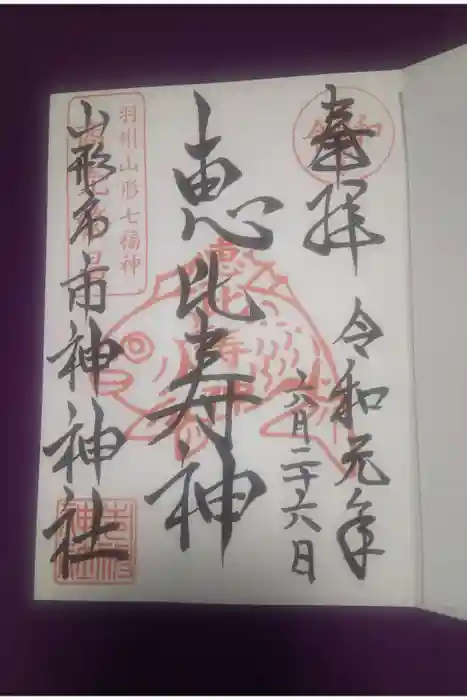 奉拝
令和元年
六月二十六日
恵比寿神
山形市市神神社
羽州山形七福神
令和
恵比寿神